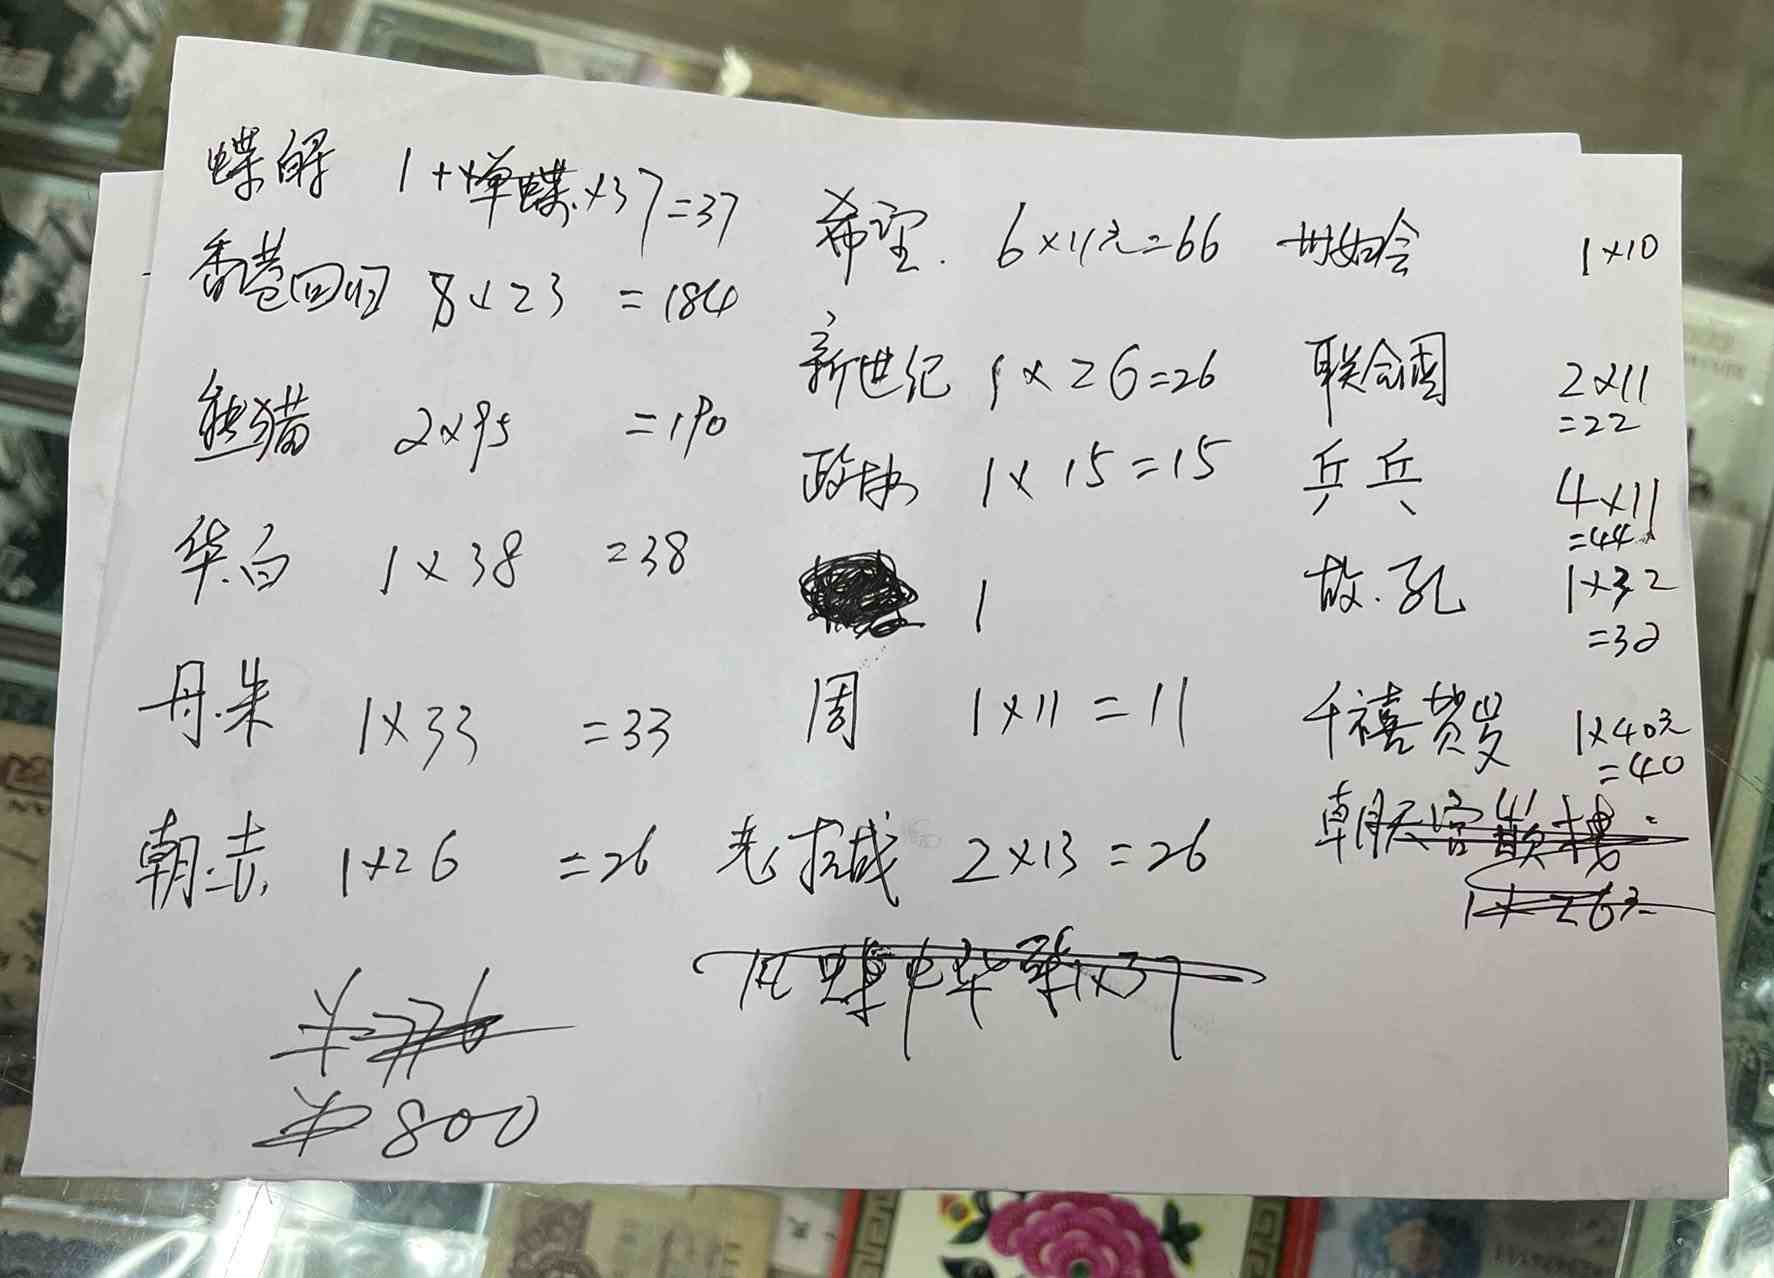 蝶解 1+1单蝶×37=37
香港回归 8×23 =184
熊猫 2×95 =190
华.白 1×38 =38
丹.朱 1×33 =33
朝.吉 1×26 =26
¥776
¥800
希望. 6×11元=66
新世纪 1×26=26
政协 1×15=15
1
周 1×11=11
老抗战 2×13=26
蝶中华 1×37
世妇会 1×10
联合国 2×11
=22
乒乓 4×11
=44
故.孔 1×32
=32
千禧贺岁 1×40元
=40
朝天宫
1×26元